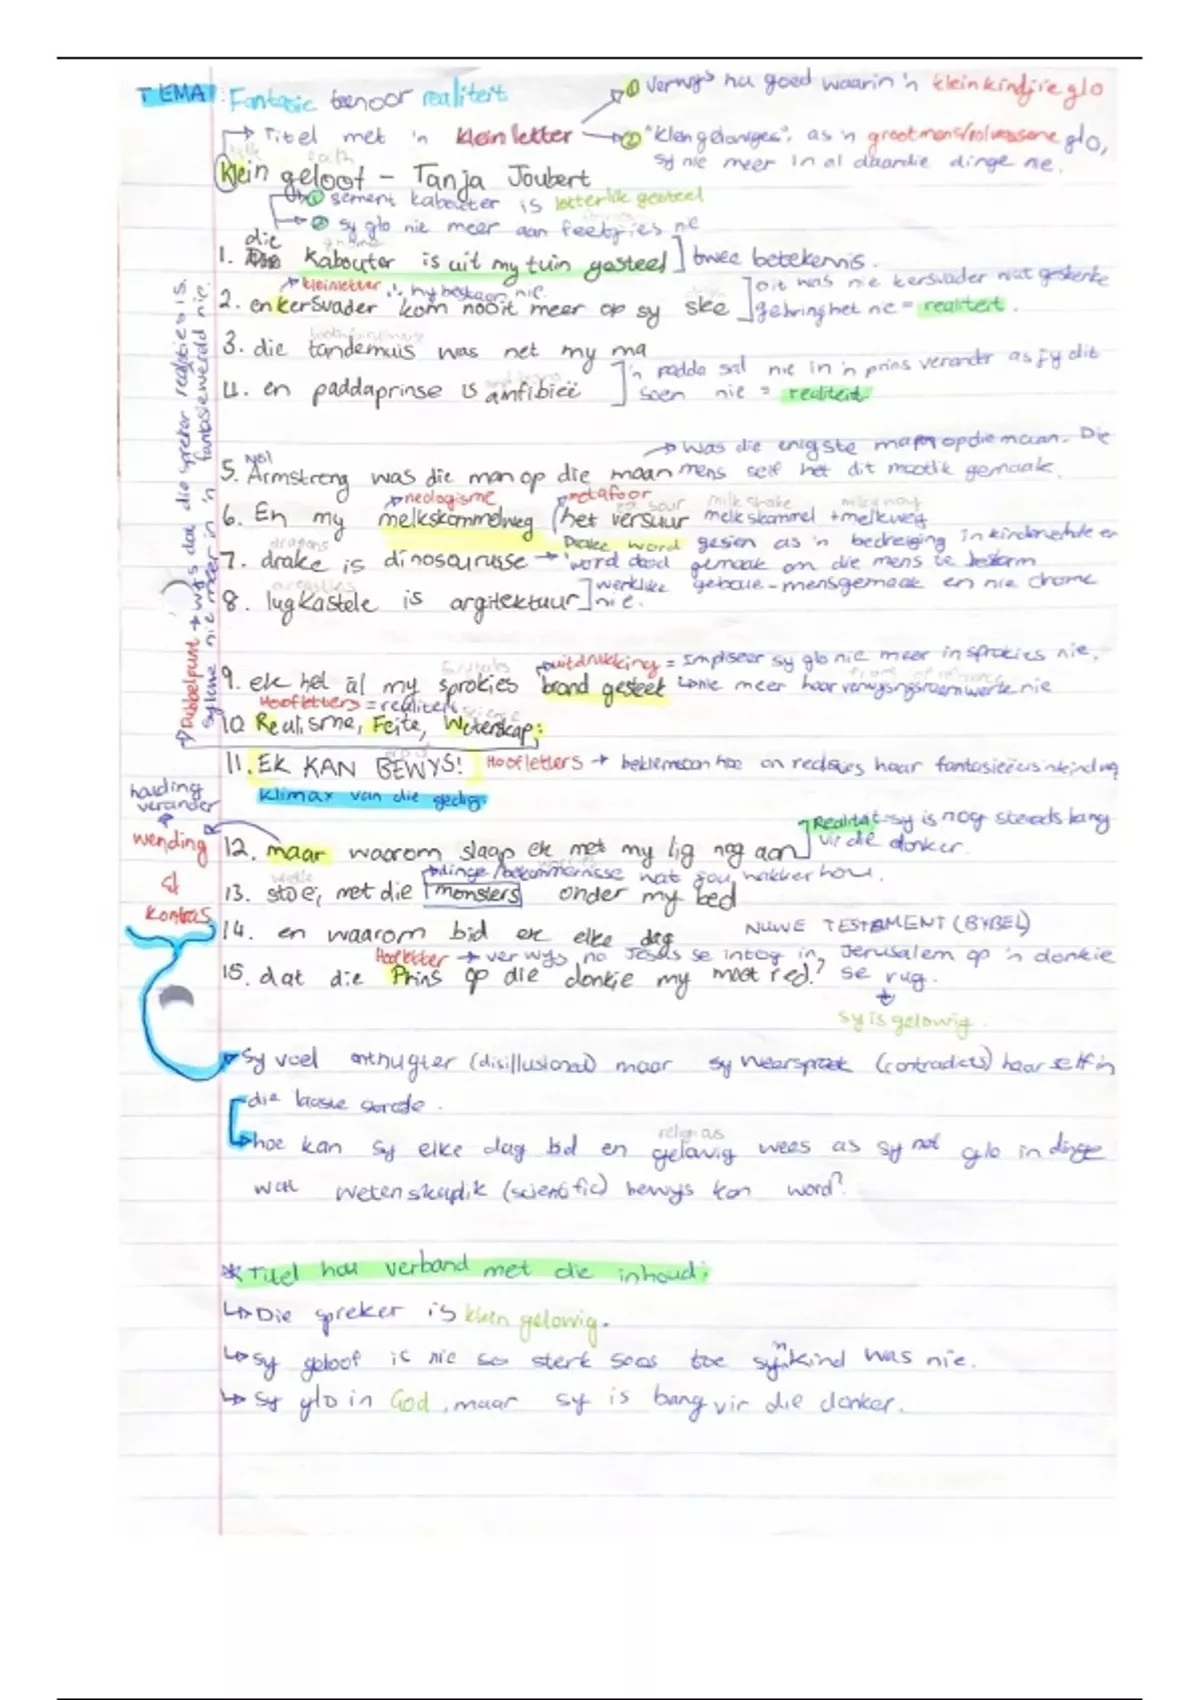 TEMA: Fantasie teenoor realiteit
① Verwys na goed waarin 'n klein kindjie glo
Titel met 'n klein letter
② "Klein gelowiges", as 'n grootmens/volwassene glo,
sy nie meer in al daardie dinge nie.
klein geloof – Tanja Joubert
① sement kabouter is letterlik gesteel
② sy glo nie meer aan feetjies nie
1. die kabouter is uit my tuin gesteel ] twee betekennis.
kleinletter ∴ hy bestaan nie.
dit was nie kersvader wat geskenke
2. en kersvader kom nooit meer op sy slee
gebring het nie = realiteit.
3. die tandemuis was net my ma
'n padda sal nie in 'n prins verander as jy dit
4. en paddaprinse is amfibieë
soen nie = realiteit.
Was die enigste man op die maan. Die
5. Armstrong was die man op die maan
mens self het dit moontlik gemaak.
neologisme
metafoor
milk shake
milky way
6. En my melkskommelweg het versuur
melkskommel + melkweg
dragons
Drake word gesien as 'n bedreiging in kinderverhale en
7. drake is dinosourusse
word dood gemaak om die mens te beskerm
8. lugkastele is argitektuur
werklike geboue – mensgemaak en nie drome nie.
uitdrukking = Impliseer sy glo nie meer in sprokies nie,
9. ek het al my sprokies brand gesteek
nie meer haar verwysingsraamwerk nie
Hoofletters = realiteit
science
10. Realisme, Feite, Wetenskap:
Dubbelpunt → wys dat die spreker realisties is.
sy lewe nie meer in 'n fantasiewêreld nie.
11. EK KAN BEWYS!
Hoofletters → beklemtoon hoe
haar
Klimax van die gedig.
houding verander
wending
kontras
Realiteit – sy is nog steeds bang
vir die donker.
12. maar waarom slaap ek met my lig nog aan
dinge/bekommernisse wat jou wakker hou.
13. stoei, met die monsters onder my bed
14. en waarom bid ek elke dag
NUWE TESTAMENT (BYBEL)
Hoofletter → verwys na Jesus se intog in Jerusalem op 'n donkie
se rug.
15. dat die Prins op die donkie my moet red?
sy is gelowig.
Sy voel ontnugter (disillusioned) maar sy weerspreek (contradicts) haarself in
die laaste strofe.
religious
hoe kan sy elke dag bid en gelowig wees as sy net glo in dinge
wat wetenskaplik (scientific) bewys kan word?
* Titel hou verband met die inhoud:
Die spreker is klein gelowig.
Sy geloof is nie so sterk soos toe sy 'n kind was nie.
Sy glo in God, maar sy is bang vir die donker.